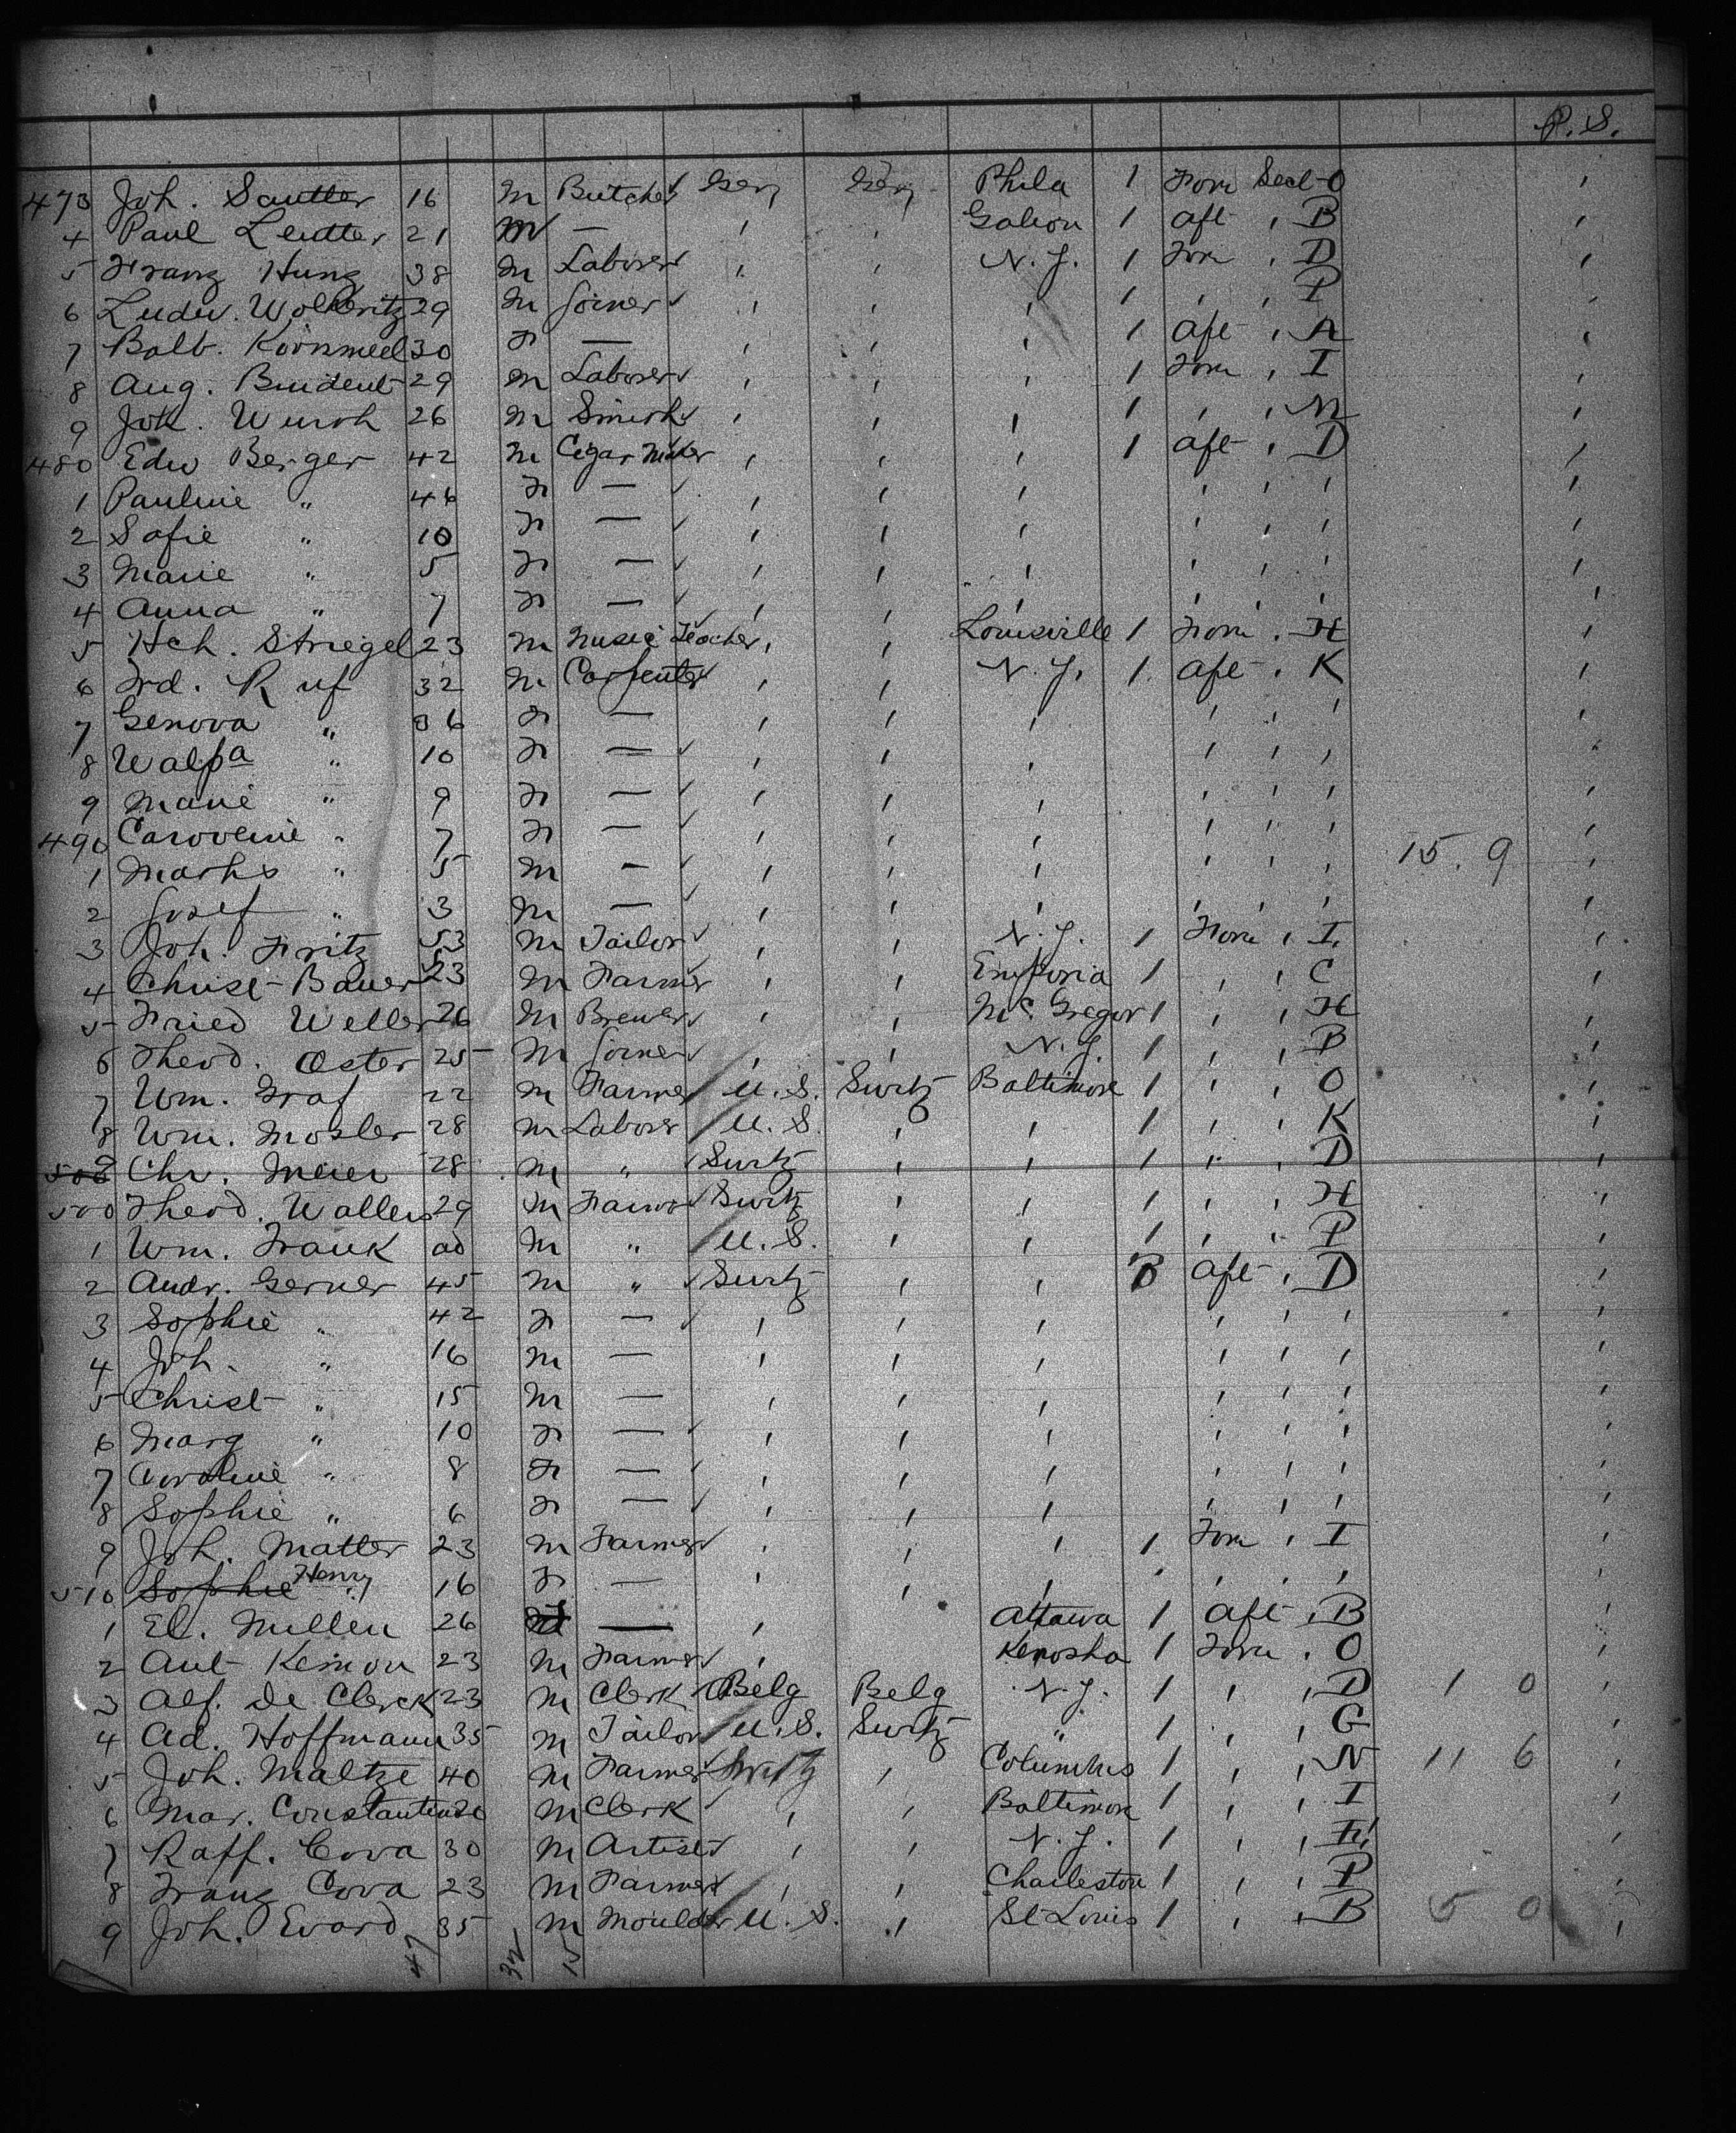 P. S.
473 Joh. Sautter 16 m Butcher Gery Gery Phila 1 Forw Sect O
4 Paul Leutter 21 m — , , Galion 1 aft , B ,
5 Franz Hung 38 m Laborer , , N. Y. 1 Forw , D ,
6 Ludw. 29 m Joiner , , , 1 , , P ,
7 Balb. 30 F — , , , 1 aft , A ,
8 Aug. 29 m Laborer , , , 1 Forw , I ,
9 Joh. 26 m , , , 1 , ,
480 Edw Berger 42 m Cigar Maker , , , 1 aft , D ,
1 Pauline " 46 F — , , , , , , ,
2 Sofie " 10 F — , , , , , , ,
3 Marie " 5 F — , , , , , , ,
4 Anna " 7 F — , , , , , , ,
5 Hch. Striegel 23 m Music Teacher , , Louisville 1 Forw , H ,
6 Frd. Ruf 32 m Carpenter , , N. Y. 1 aft , K ,
7 Genova " 36 F — , , , , , , ,
8 Walpa " 10 F — , , , , , , ,
9 Marie " 9 F — , , , , , , ,
490 " 7 F — , , , , , , ,
1 " 5 m — , , , , , , 15. 9 ,
2 Josef " 3 m — , , , , , , ,
3 Joh. Fritz 53 m Tailor , , N. Y. 1 Forw , I ,
4 Christ Bauer 23 m Farmer , , Emporia 1 , , C ,
5 Fried Weller 26 m Brewer , , Mc. Gregor 1 , , H ,
6 Theod. Oster 25 m Joiner , , N. Y. 1 , , B ,
7 Wm. Graf 22 m Farmer U. S. Swtz Baltimore 1 , , O ,
8 Wm. Mosler 28 m Laborer U. S. , , 1 , , K ,
9 Chr. Meier 28 m " Swtz , , 1 , , D ,
500 Theod. Wallers 29 m Farmer Swtz , , 1 , , H ,
1 Wm. Frank m " U. S. , , 1 , , P ,
2 Andr. Gerner 45 m " Swtz , , aft , D ,
3 Sophie " 42 F — , , , , , , ,
4 Joh. " 16 m — , , , , , , ,
5 Christ " 15 m — , , , , , , ,
6 Marg " 10 F — , , , , , , ,
7 Caroline " 8 F — , , , , , , ,
8 Sophie " 6 F — , , , , , , ,
9 Joh. Matter 23 m Farmer , , , 1 Forw , I ,
510 Sophie Henry " 16 F — , , , , , , ,
1 El. Mullen 26 — , Attawa 1 aft , B ,
2 Ant 23 m Farmer , Kenosha 1 Forw , O ,
3 Alf. De Clerck 23 m Clerk Belg Belg N. Y. 1 , , D 1 0 ,
4 Ad. Hoffmann 35 m Tailor U. S. Swtz " 1 , , G ,
5 Joh. Maltze 40 m Farmer Swtz , Columbus 1 , , N 11 6 ,
6 Mar. Constantin m Clerk , , Baltimore 1 , , I ,
7 Raff. Cova 30 m Artist , , N. Y. 1 , , ,
8 Franz Cova 23 m Farmer , , Charleston 1 , , P ,
9 Joh. Evard 35 m Moulder U. S. , St Louis 1 , , B 5 0 ,
47 32 15